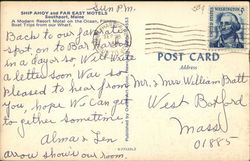 Sun P.M.
SHIP AHOY and FAR EAST MOTELS
Southport, Maine
A Modern Resort Motel on the Ocean, Fishing,
Boat Trips from our Wharf.
Back to our favorite
spot on to Bar Harbor
in a day or so Will write
a letter soon Was so
pleased to hear from
you, hope We Can get
to gether sometime,
Alma & Len
arrow shows our room.
POST CARD
Address
Mr. & Mrs William Batt
West Boxford
Mass
01885